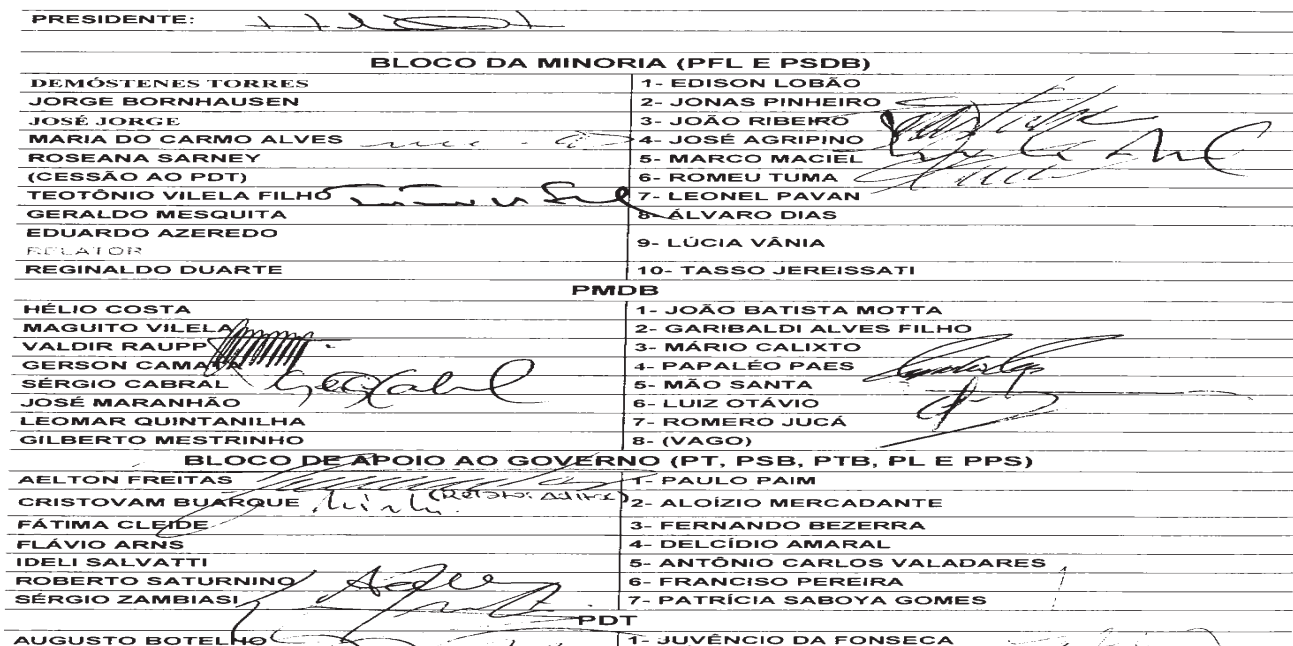 PRESIDENTE:
BLOCO DA MINORIA (PFL E PSDB)
DEMÓSTENES TORRES 1- EDISON LOBÃO
JORGE BORNHAUSEN 2- JONAS PINHEIRO
JOSÉ JORGE 3- JOÃO RIBEIRO
MARIA DO CARMO ALVES 4- JOSÉ AGRIPINO
ROSEANA SARNEY 5- MARCO MACIEL
(CESSÃO AO PDT) 6- ROMEU TUMA
TEOTÔNIO VILELA FILHO 7- LEONEL PAVAN
GERALDO MESQUITA 8- ÁLVARO DIAS
EDUARDO AZEREDO
RELATOR 9- LÚCIA VÂNIA
REGINALDO DUARTE 10- TASSO JEREISSATI
PMDB
HÉLIO COSTA 1- JOÃO BATISTA MOTTA
MAGUITO VILELA 2- GARIBALDI ALVES FILHO
VALDIR RAUPP 3- MÁRIO CALIXTO
GERSON CAMATA 4- PAPALÉO PAES
SÉRGIO CABRAL 5- MÃO SANTA
JOSÉ MARANHÃO 6- LUIZ OTÁVIO
LEOMAR QUINTANILHA 7- ROMERO JUCÁ
GILBERTO MESTRINHO 8- (VAGO)
BLOCO DE APOIO AO GOVERNO (PT, PSB, PTB, PL E PPS)
AELTON FREITAS 1- PAULO PAIM
CRISTOVAM BUARQUE 2- ALOÍZIO MERCADANTE
FÁTIMA CLEIDE 3- FERNANDO BEZERRA
FLÁVIO ARNS 4- DELCÍDIO AMARAL
IDELI SALVATTI 5- ANTÔNIO CARLOS VALADARES
ROBERTO SATURNINO 6- FRANCISO PEREIRA
SÉRGIO ZAMBIASI 7- PATRÍCIA SABOYA GOMES
PDT
AUGUSTO BOTELHO 1- JUVÊNCIO DA FONSECA